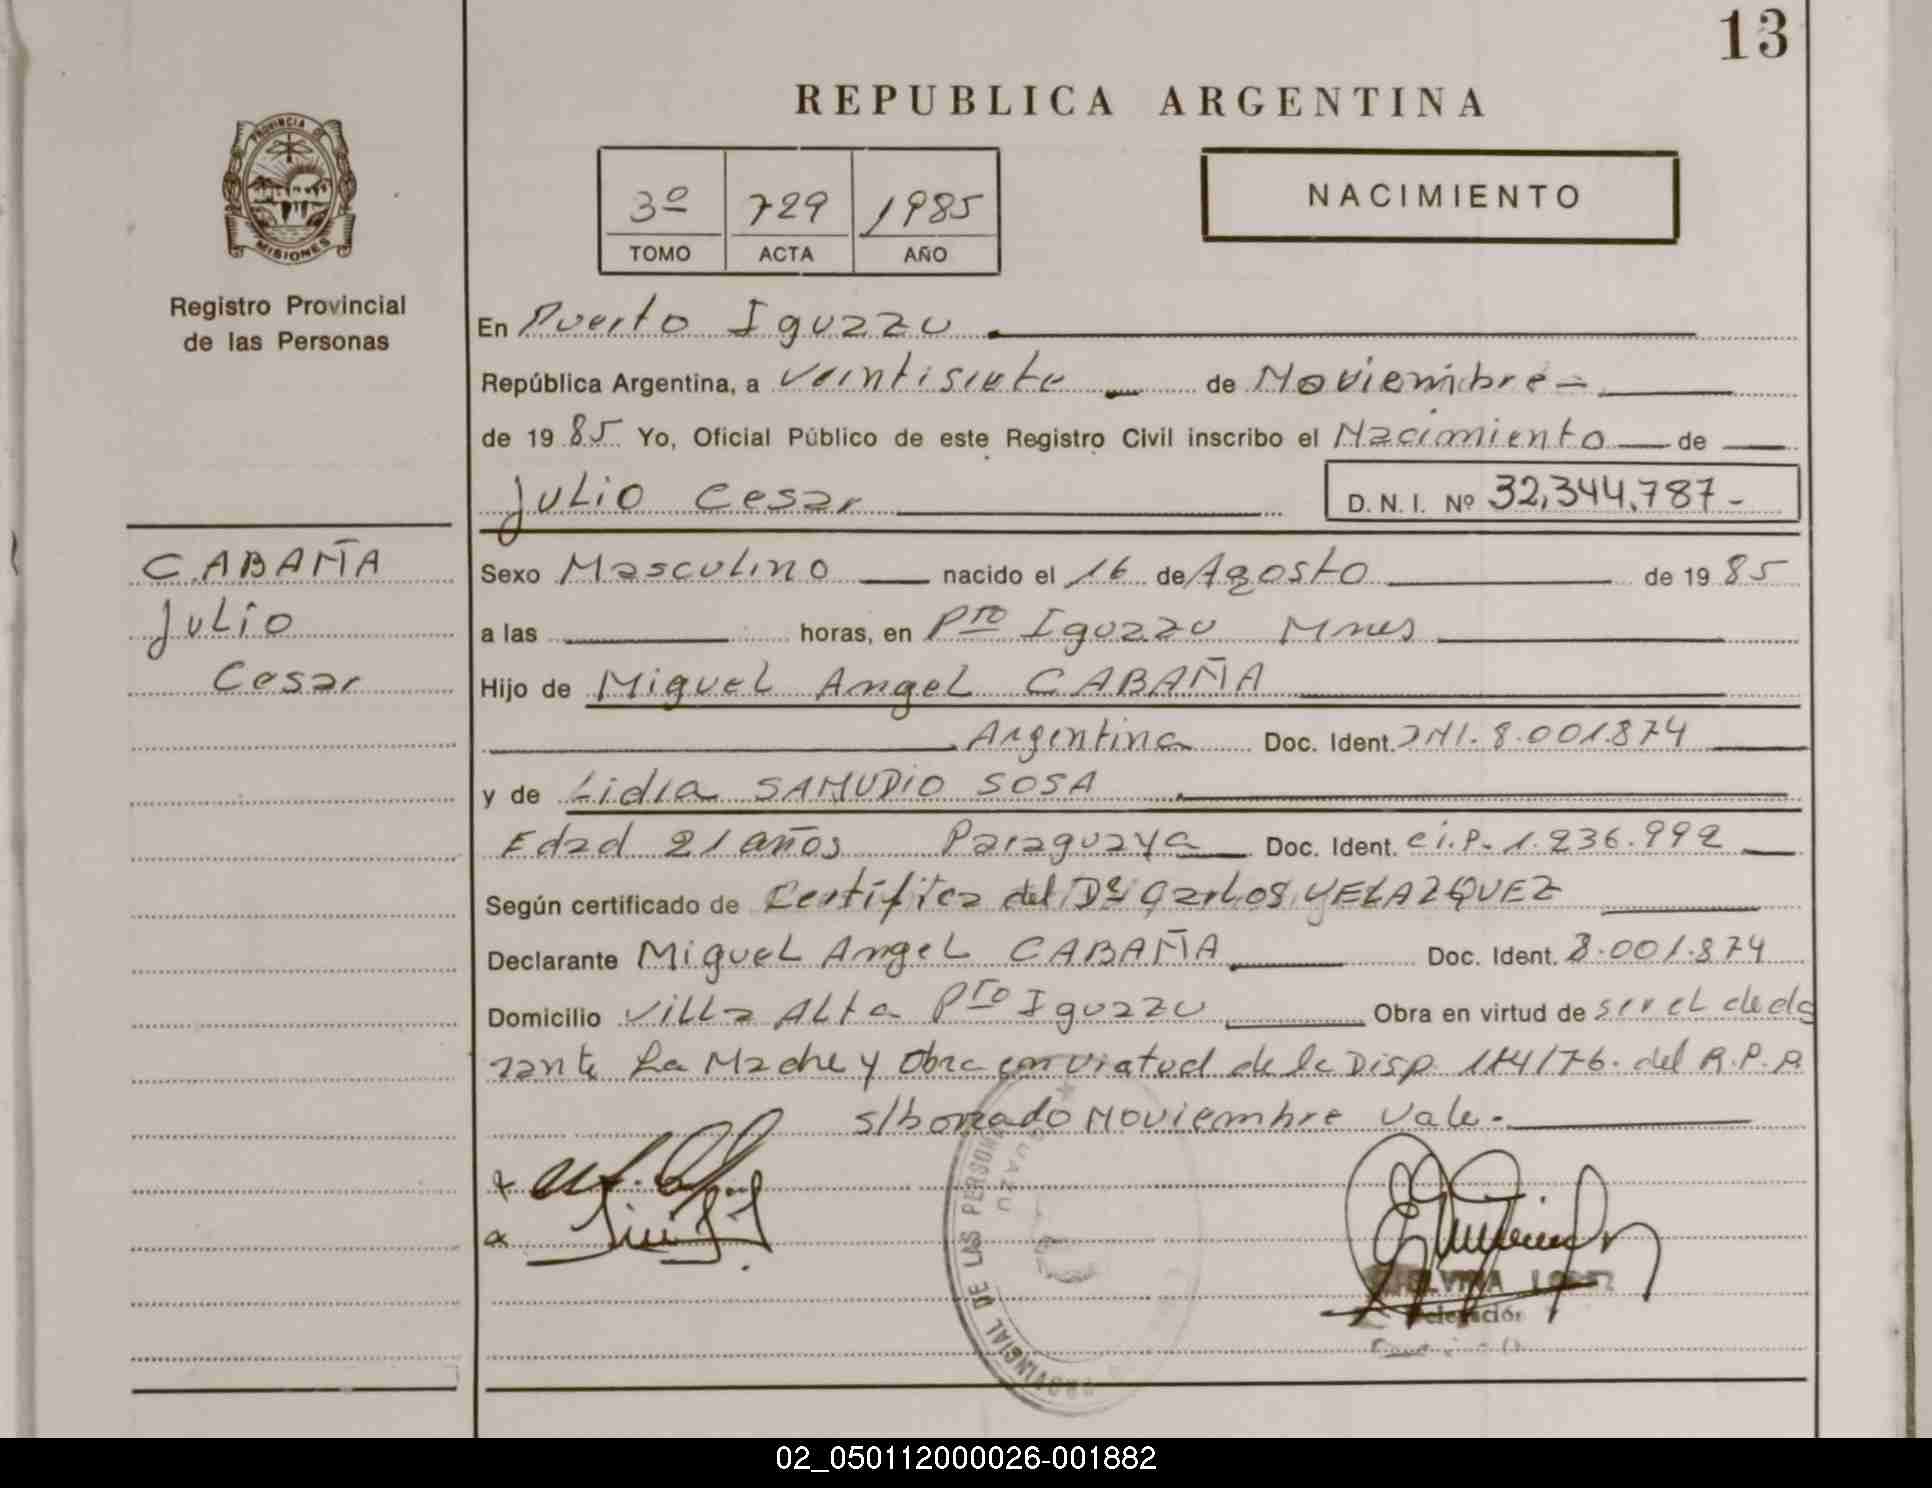 13
REPUBLICA ARGENTINA
PROVINCIA DE
MISIONES
Registro Provincial
de las Personas
3º 729 1985
TOMO ACTA AÑO
NACIMIENTO
En Puerto Iguazu
República Argentina, a veintisiete de Noviembre
de 1985 Yo, Oficial Público de este Registro Civil inscribo el Nacimiento de
Julio Cesar D.N.I. Nº 32,344,787-
CABAÑA
Julio
Cesar
Sexo Masculino nacido el 16 de Agosto de 1985
a las horas, en Pto Iguazu Mnes
Hijo de Miguel Angel CABAÑA
Argentina Doc. Ident. DNI. 8.001874
y de Lidia SAMUDIO SOSA
Edad 21 años Paraguaya Doc. Ident. Ci.P. 1.236.992
Según certificado de Certifica del Dr Carlos VELAZQUEZ
Declarante Miguel Angel CABAÑA Doc. Ident. 8.001.874
Domicilio Villa Alta Pto Iguazu Obra en virtud de ser el decla
rante La Madre y Obra en virtud de la Disp. 114/76. del R.P.P.
s/borrado Noviembre Vale.
PROVINCIAL DE LAS PERSONAS
LOPEZ
02_050112000026-001882